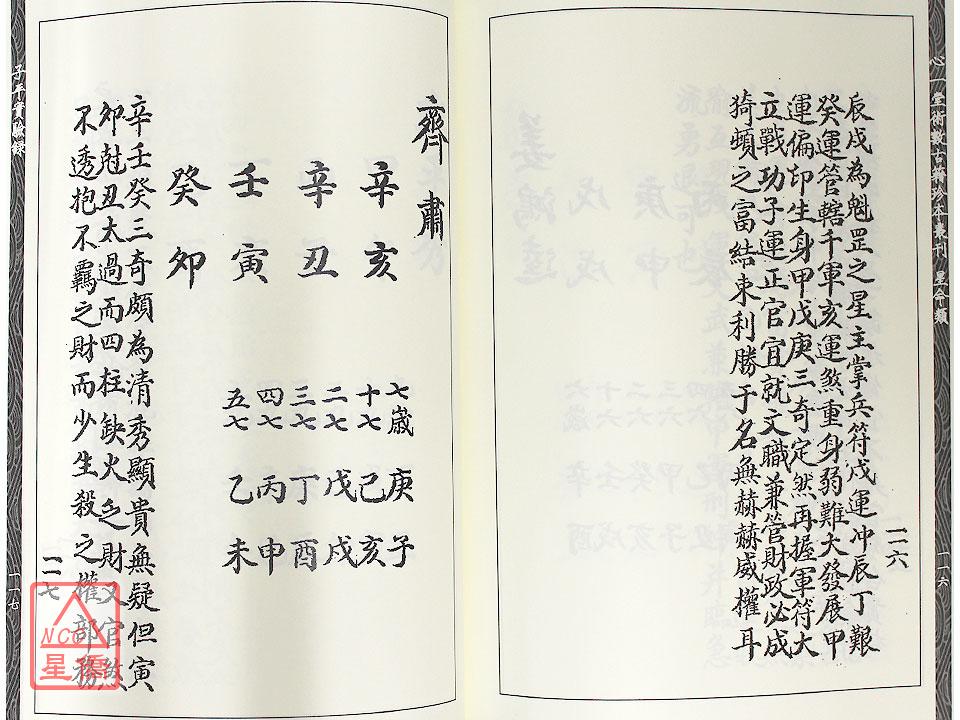 心一堂術數古籍珍本叢刊 星命類
一一六
一二六
辰戌為魁罡之星主掌兵符戌運冲辰丁艱
癸運管轄千軍亥運煞重身弱難大發展甲
運偏印生身甲戊庚三奇定然再握軍符大
立戰功子運正官宜就文職兼管財政必成
猗頓之富結束利勝于名無赫赫威權耳
齊肅
辛亥
辛丑
壬寅
癸卯
七歲 庚子
十七 己亥
二七 戊戌
三七 丁酉
四七 丙申
五七 乙未
辛壬癸三奇頗為清秀顯貴無疑但寅
卯尅丑太過而四柱缺火乏財又官煞
不透抱不羈之財而少生殺之權部務
一二七
子平實驗錄
一一七
NCC
星僑